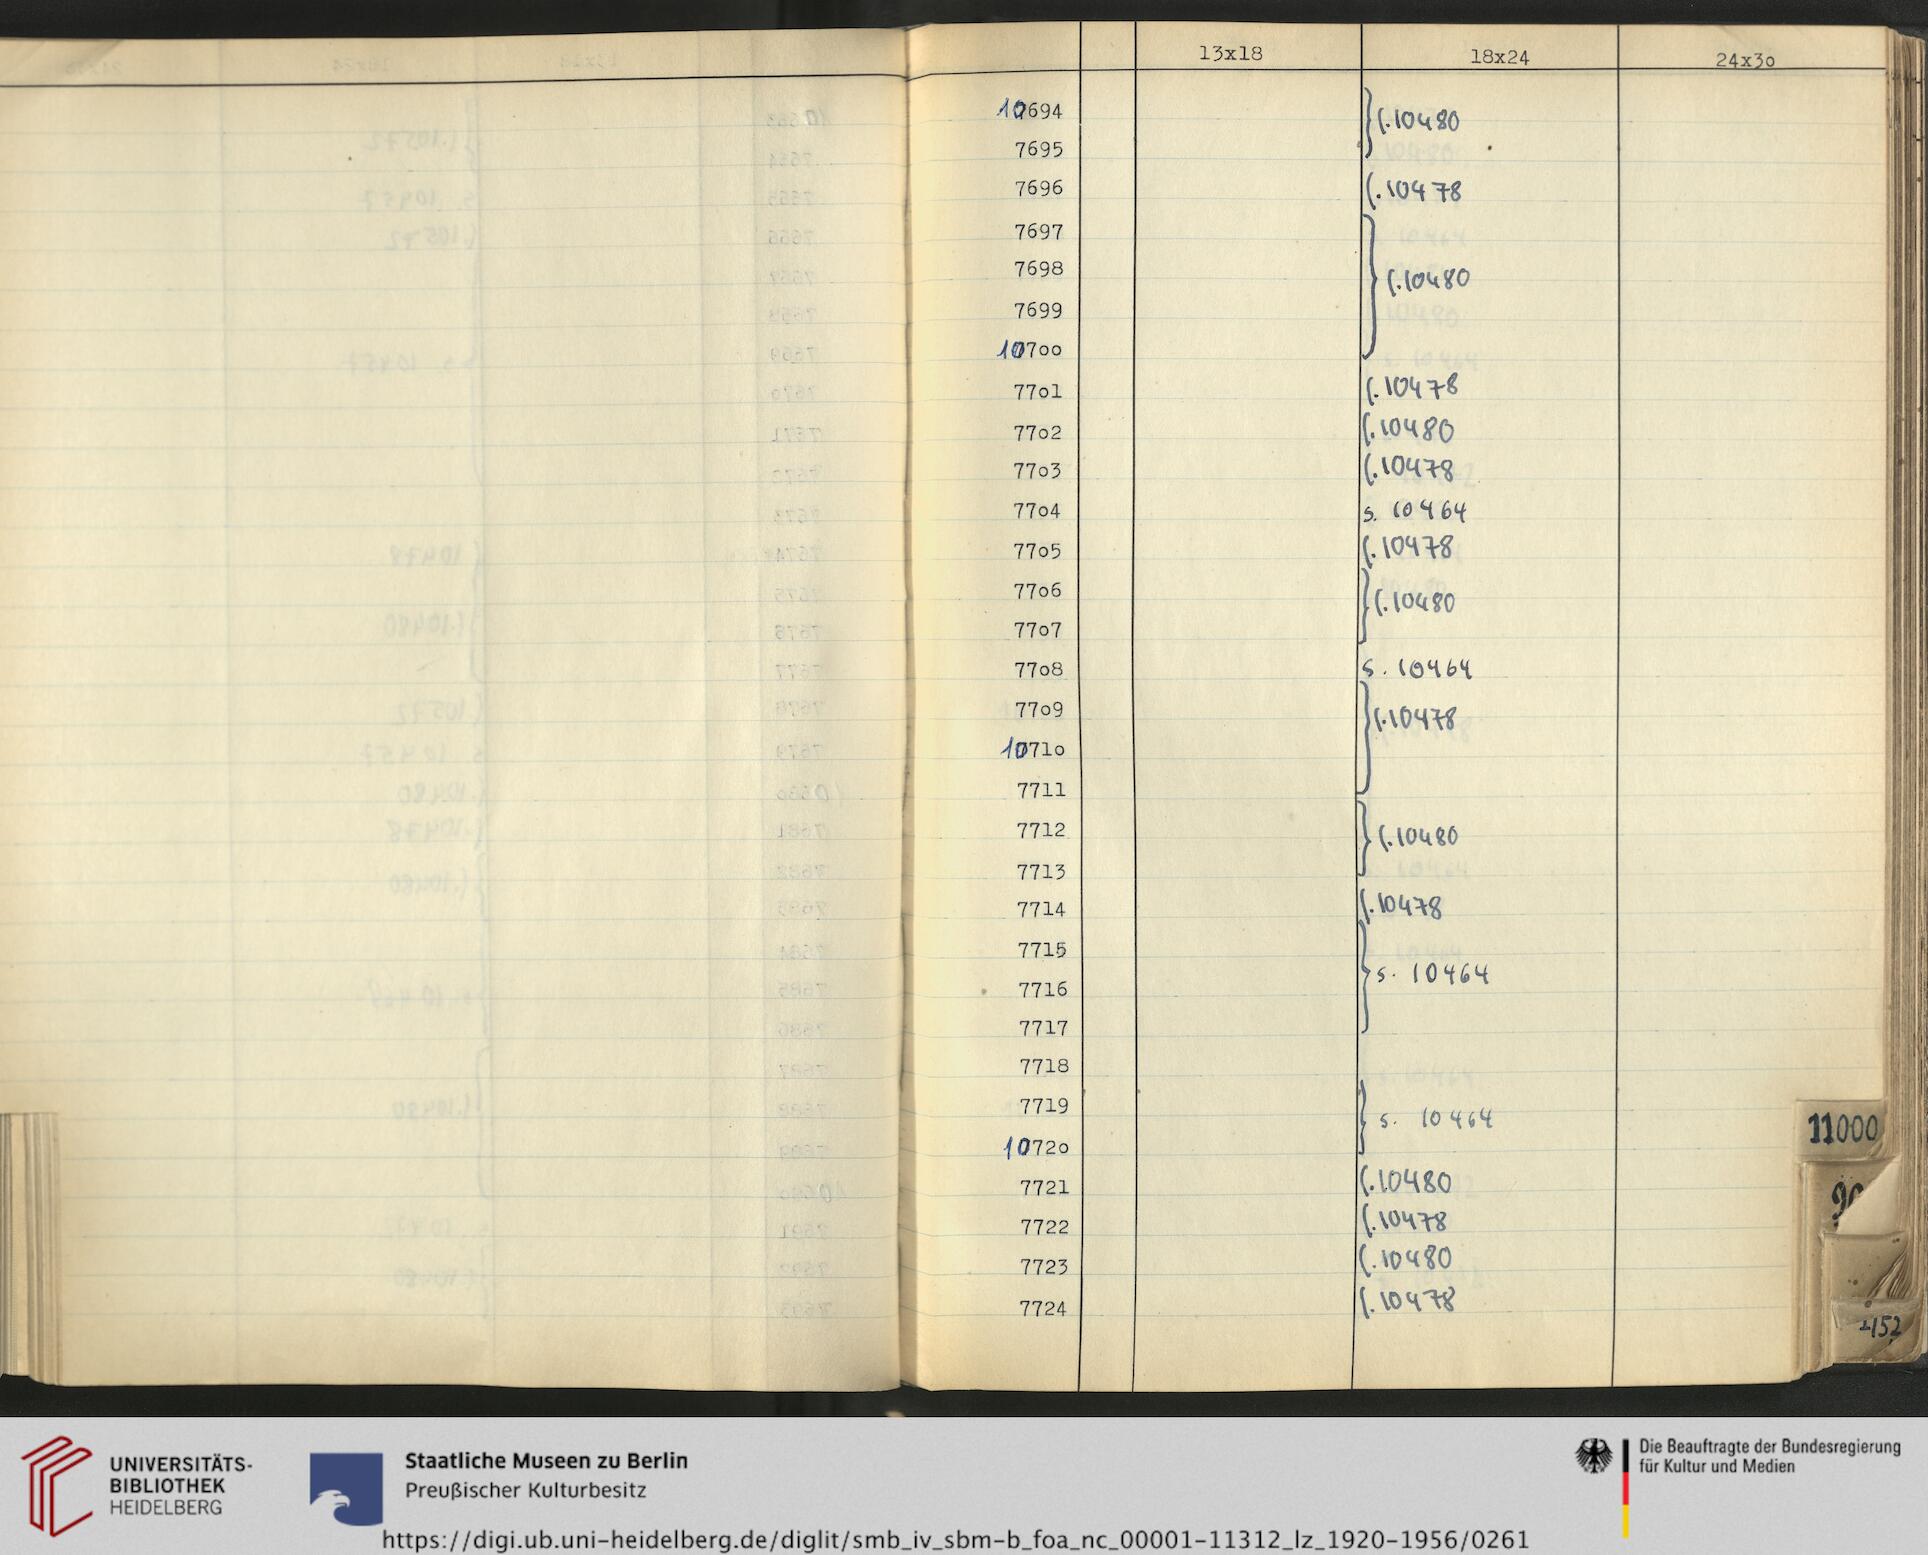 13x18 18x24 24x3o
10694 s.10480
7695
7696 s.10478
7697
7698 s.10480
7699
10700
77o1 s.10478
77o2 s.10480
77o3 s.10478
77o4 s. 10464
77o5 s.10478
77o6 s.10480
77o7
77o8 s. 10464
77o9 s.10478
1071o
7711
7712 s.10480
7713
7714 s.10478
7715
7716 s. 10464
7717
7718
7719 s. 10464
1072o
7721 s.10480
7722 s.10478
7723 s.10480
7724 s.10478
11000
90
152
UNIVERSITÄTS-
BIBLIOTHEK
HEIDELBERG
Staatliche Museen zu Berlin
Preußischer Kulturbesitz
Die Beauftragte der Bundesregierung
für Kultur und Medien
https://digi.ub.uni-heidelberg.de/diglit/smb_iv_sbm-b_foa_nc_00001-11312_lz_1920-1956/0261